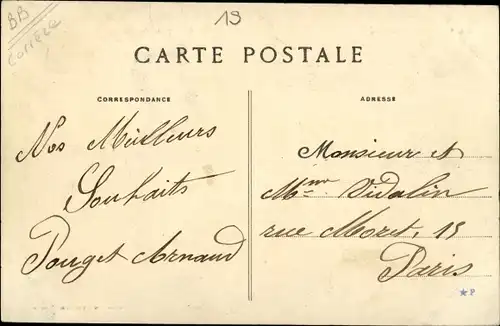 BB
Corrèze
19
CARTE POSTALE
CORRESPONDANCE
Nos Meilleurs
Souhaits
Pouget Arnaud
ADRESSE
Monsieur et
Mme Vidalin
rue Moret, 15
Paris
★P